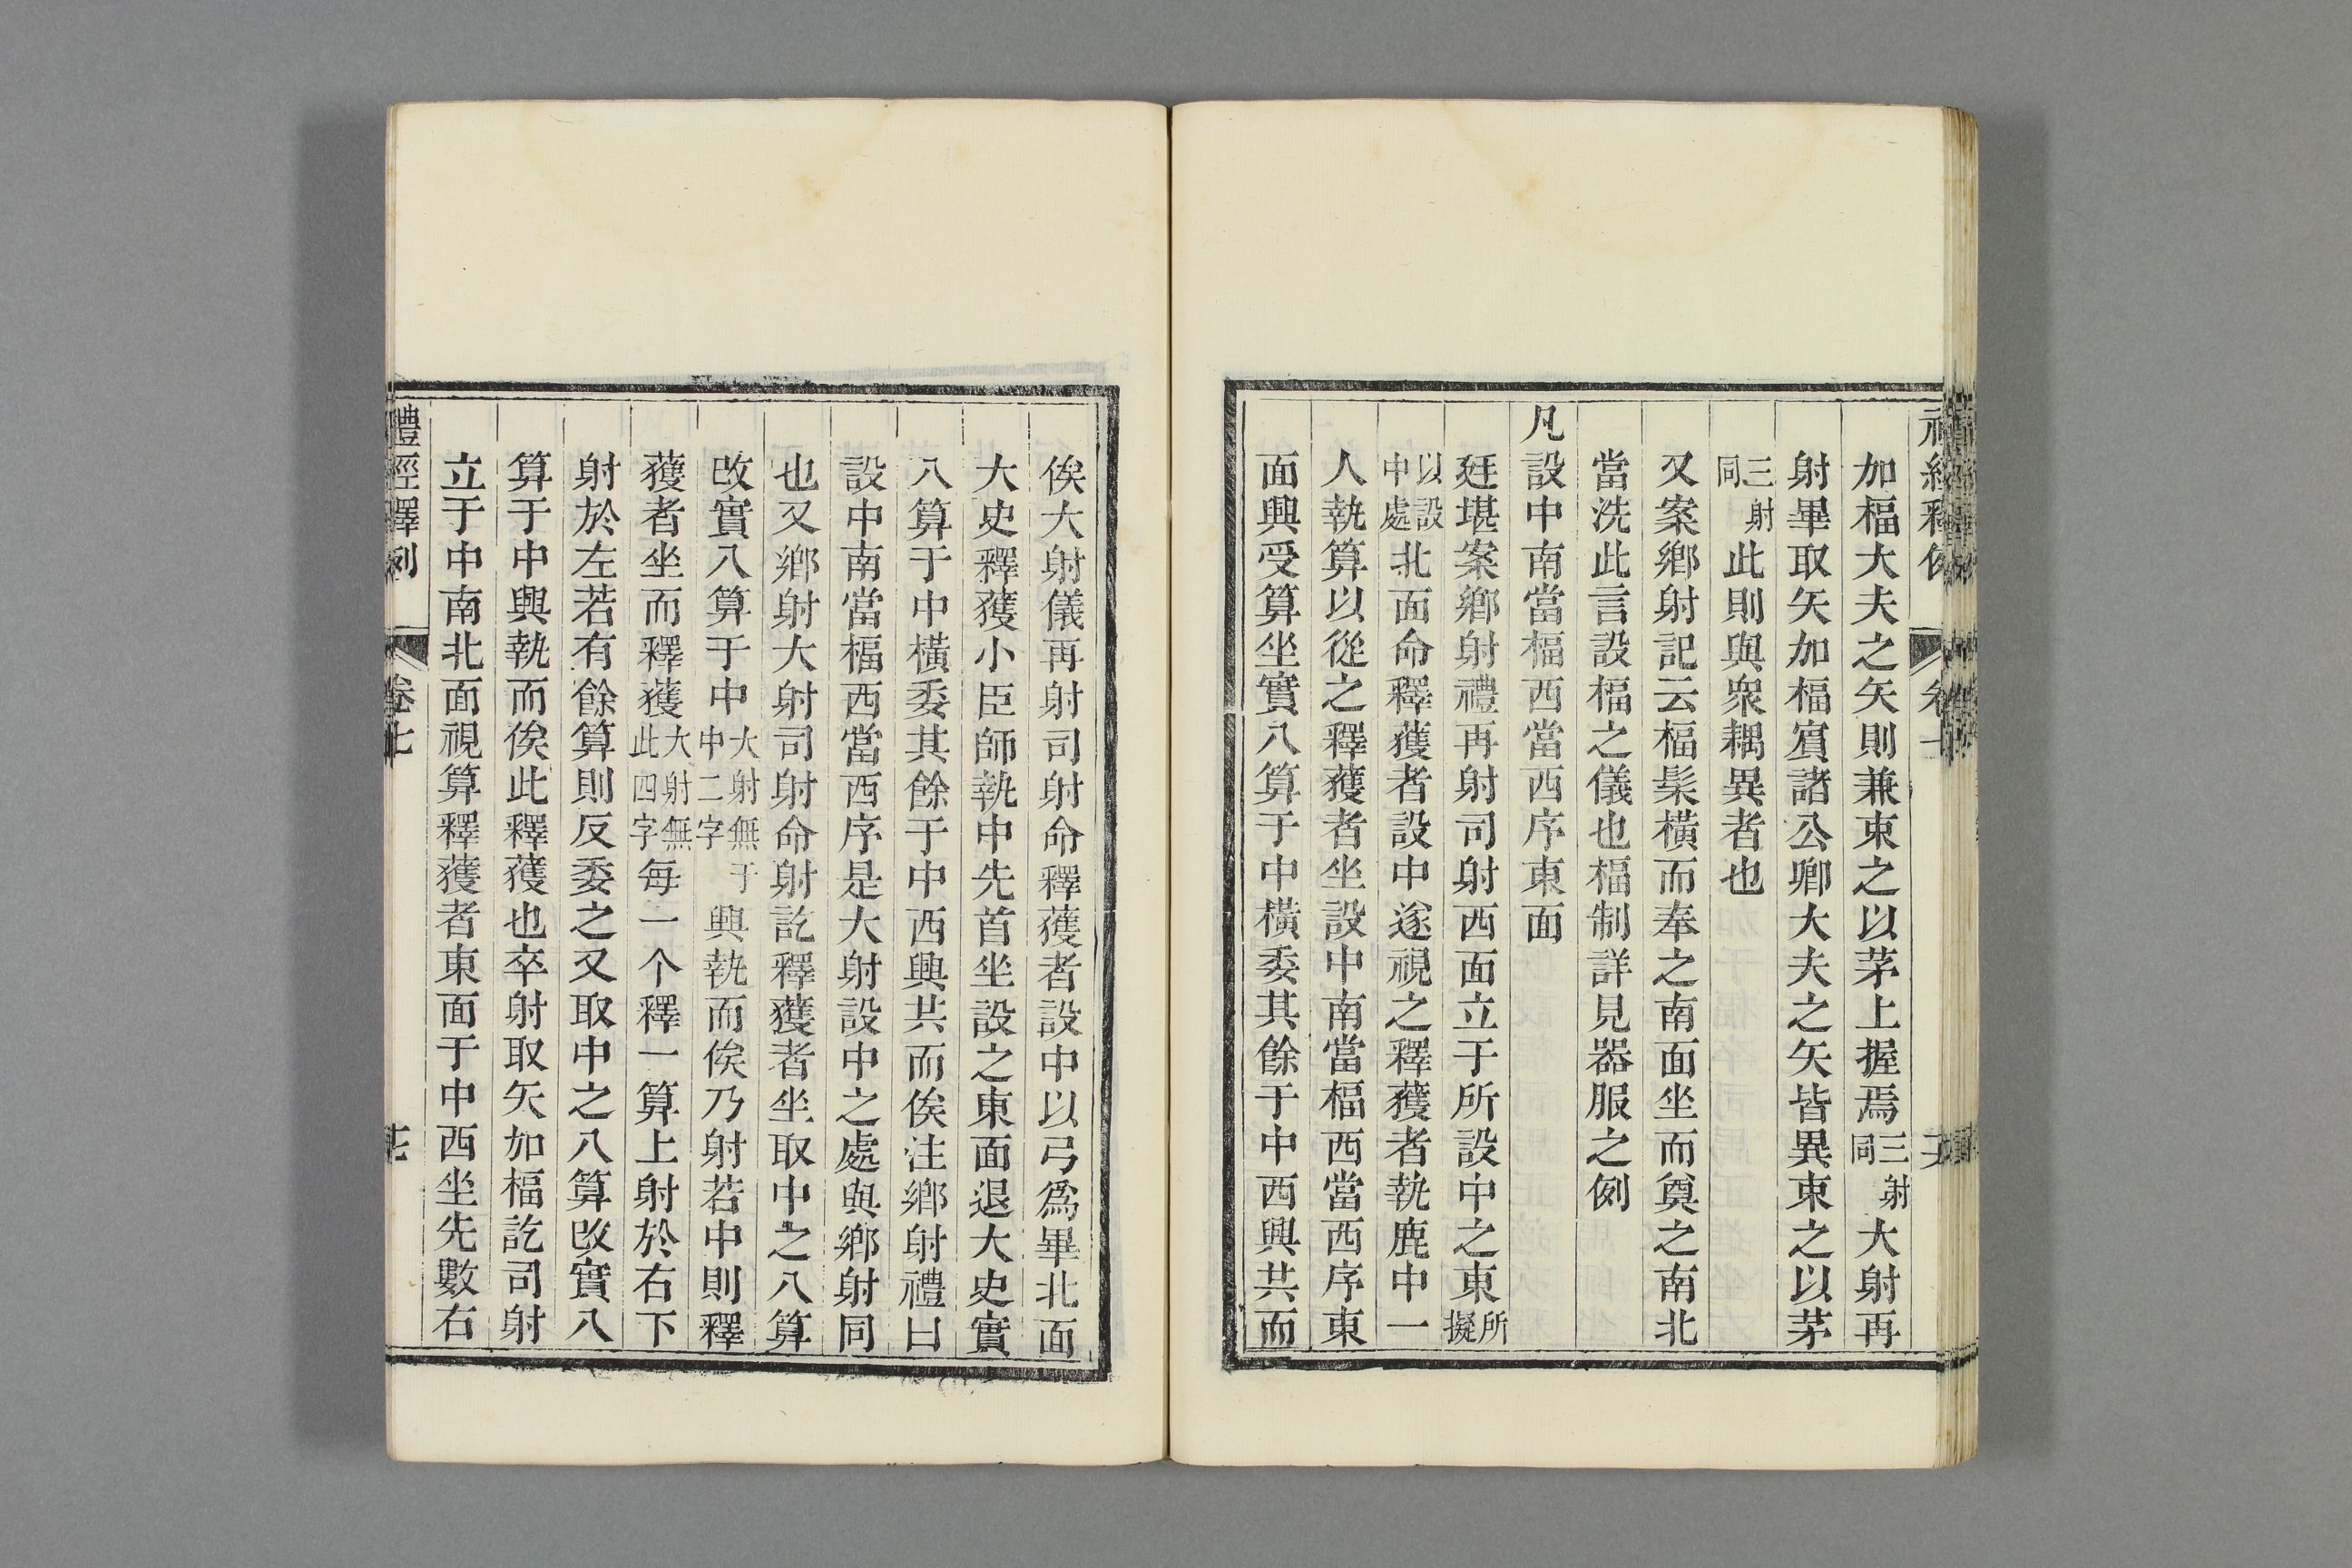 加楅大夫之矢則兼束之以茅上握焉三射同大射再
射畢取矢加楅賔諸公卿大夫之矢皆異束之以茅
三射同此則與衆耦異者也
又案鄉射記云楅髤橫而奉之南面坐而奠之南北
當洗此言設楅之儀也楅制詳見器服之例
凡設中南當楅西當西序東面
廷堪案鄉射禮再射司射西面立于所設中之東所擬
以設中處北面命釋獲者設中遂視之釋獲者執鹿中一
人執算以從之釋獲者坐設中南當楅西當西序東
面興受算坐實八算于中橫委其餘于中西興共而
俟大射儀再射司射命釋獲者設中以弓爲畢北面
大史釋獲小臣師執中先首坐設之東面退大史實
八算于中橫委其餘于中西興共而俟注鄉射禮曰
設中南當楅西當西序是大射設中之處與鄉射同
也又鄉射大射司射命射訖釋獲者坐取中之八算
改實八算于中大射無于中二字興執而俟乃射若中則釋
獲者坐而釋獲大射無此四字每一个釋一算上射於右下
射於左若有餘算則反委之又取中之八算改實八
算于中興執而俟此釋獲也卒射取矢加楅訖司射
立于中南北面視算釋獲者東面于中西坐先數右
禮經釋例
卷七